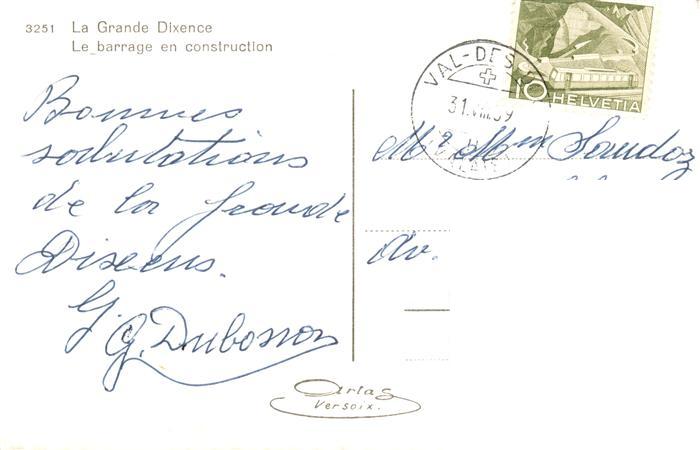 3251 La Grande Dixence
Le barrage en construction
10 HELVETIA
VAL-DES-
31.VIII.59
Bonnes
salutations
de la Grande
Dixence.
G. Dubosson
Mr & Mme Sandoz
Av.
Artas
Versoix.